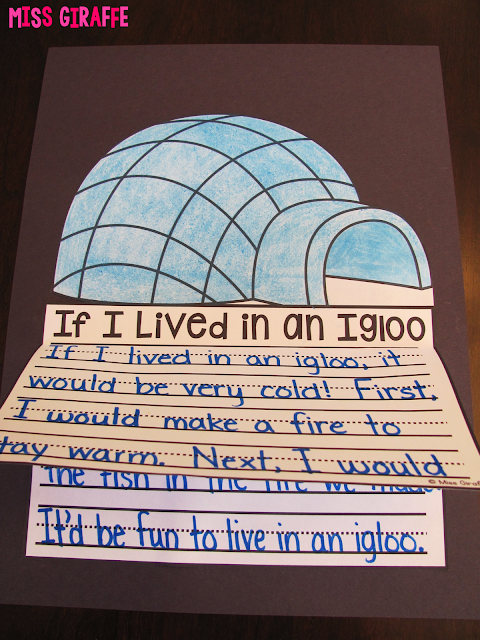 MISS GIRAFFE
If I Lived in an Igloo
If I lived in an igloo, it
would be very cold! First,
I would make a fire to
tay warm. Next, I would
© Miss Giraf
the fish in the fire we made.
It'd be fun to live in an igloo.